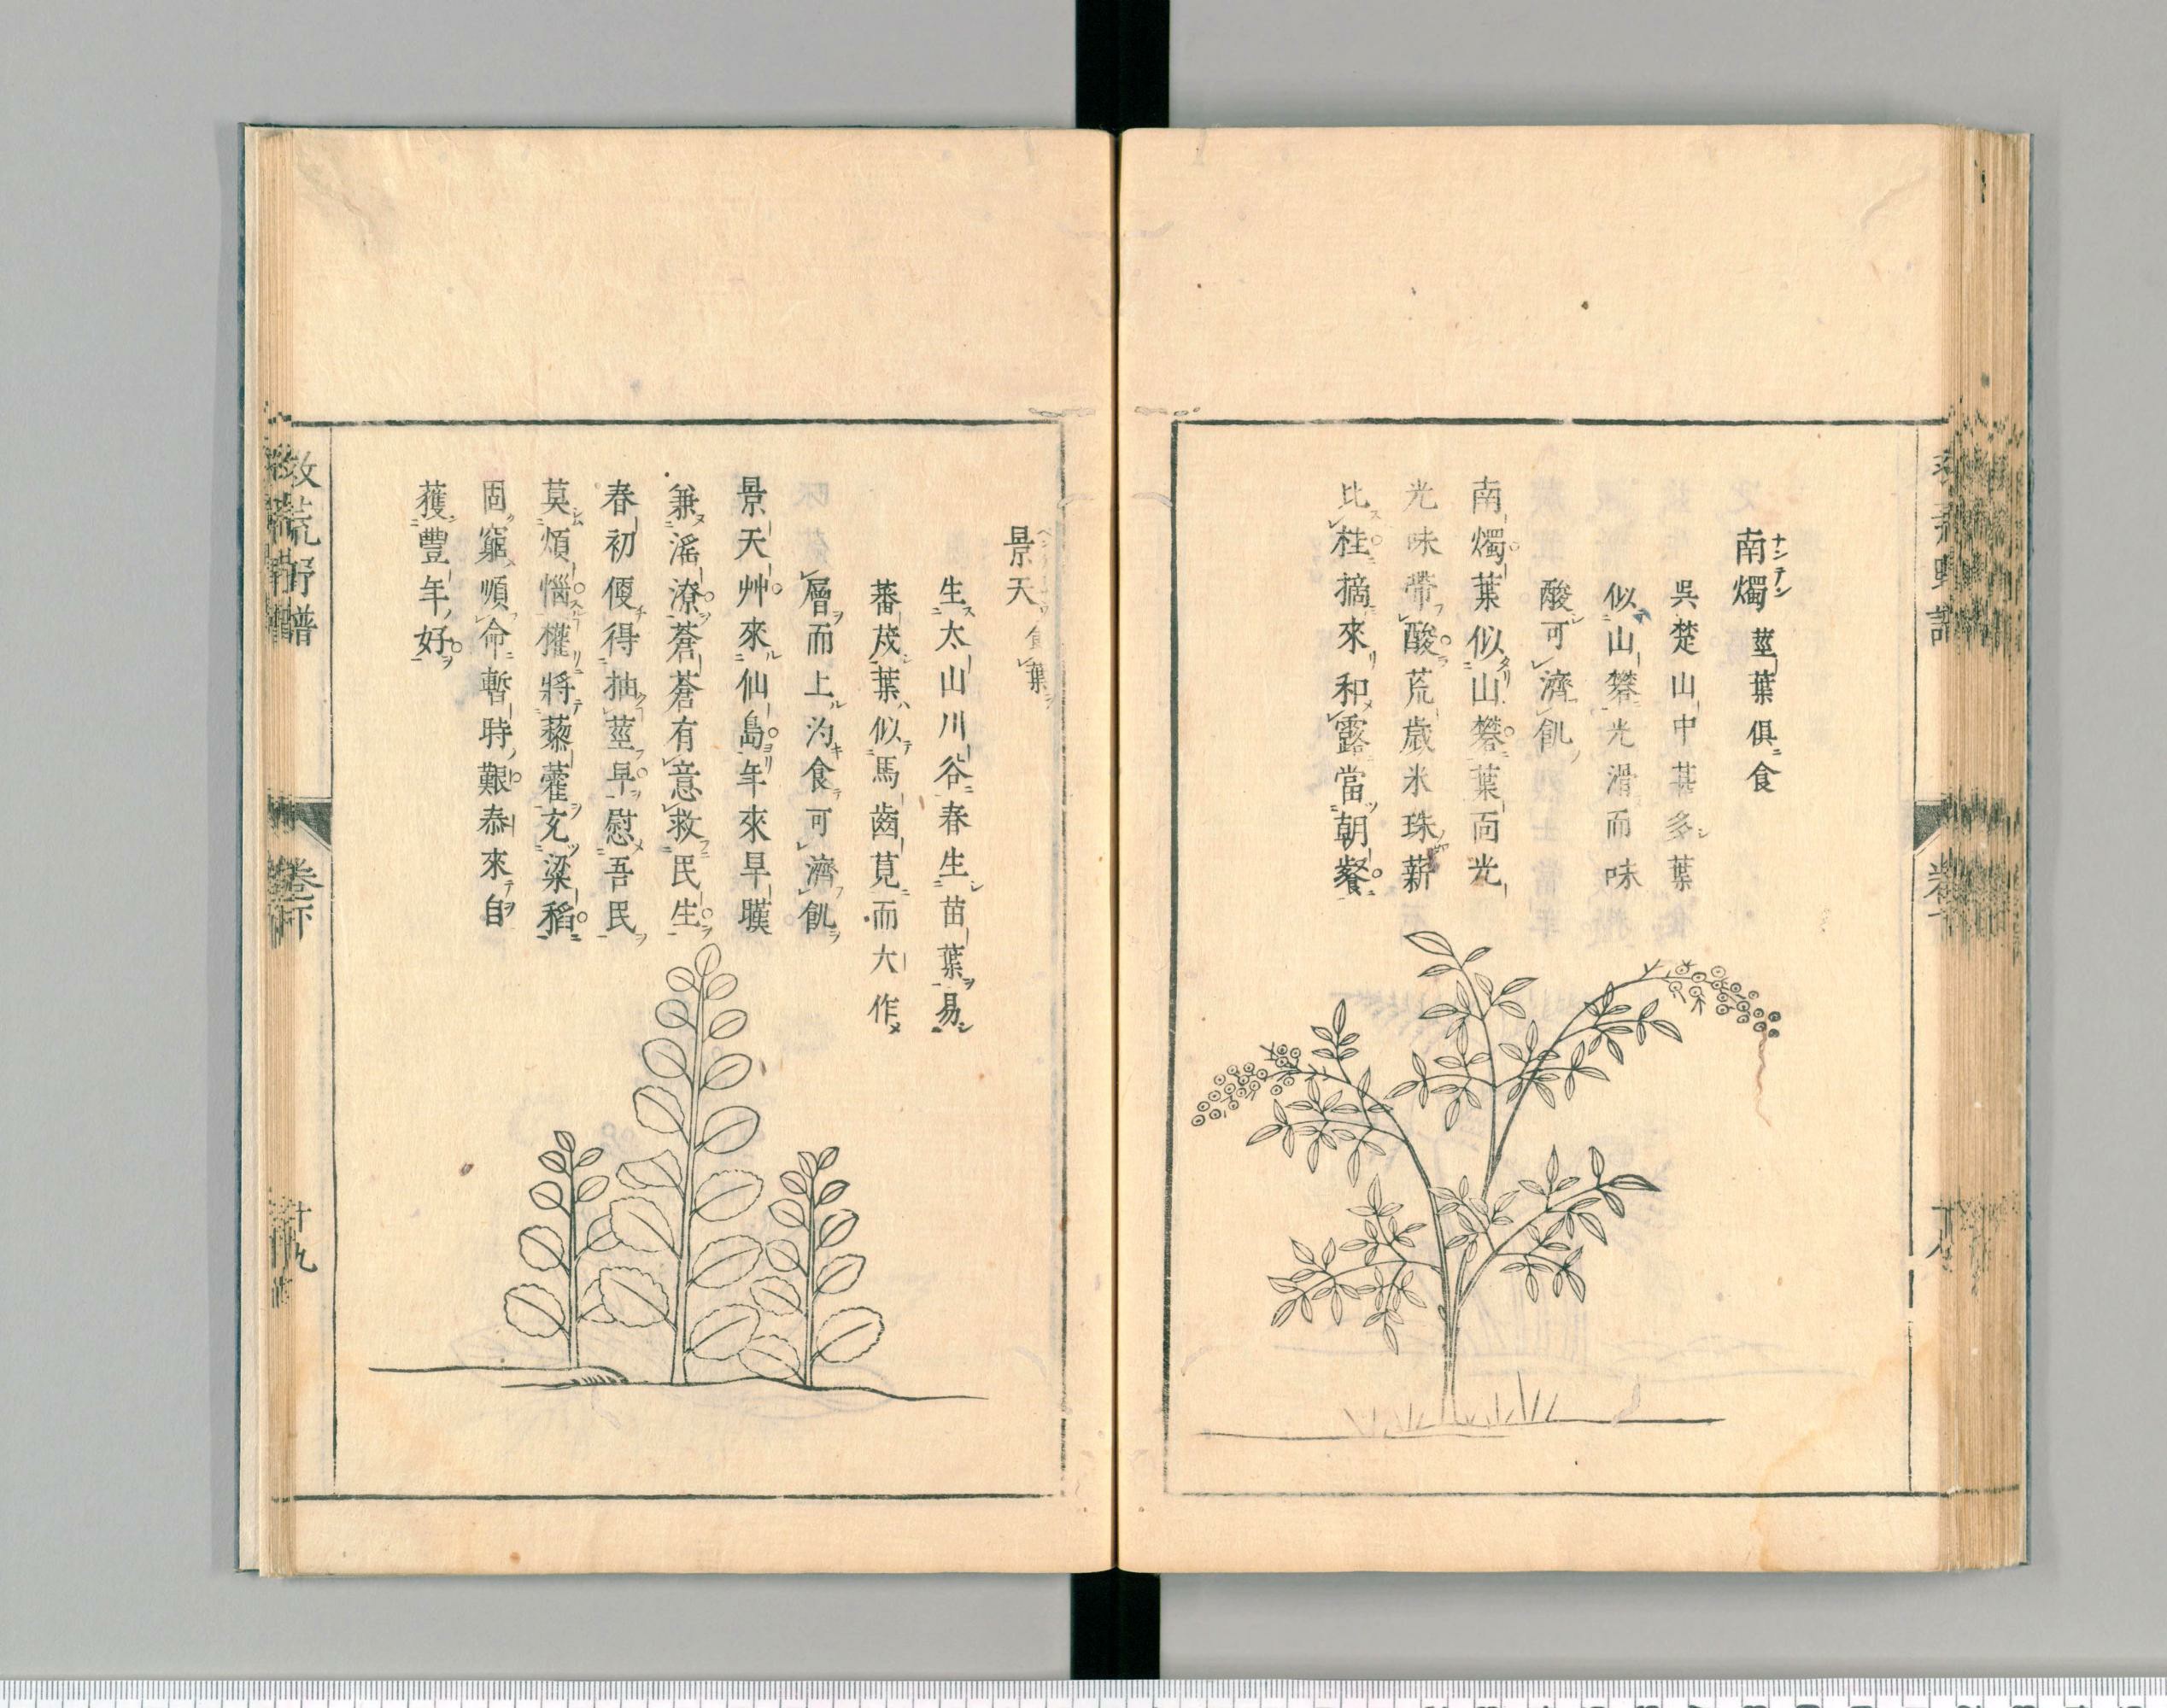 南燭 莖葉俱食
ナンテン
吳楚山中甚多葉
似山礬光滑而味
酸可濟飢
南燭葉似山礬葉面光
光味帶酸荒歲米珠薪
比桂摘來和露當朝餐
景天 食葉
生太山川谷春生苗葉易
蕃茂葉似馬齒莧而大作
層而上沟食可濟飢
景天艸來仙島年來旱暵
兼滛潦蒼蒼有意救民生
春初便得抽莖早慰吾民
莫煩惱權將藜藿充粱稻
固窮順命暫時艱泰來自
獲豐年好
救荒野譜
卷下
十九